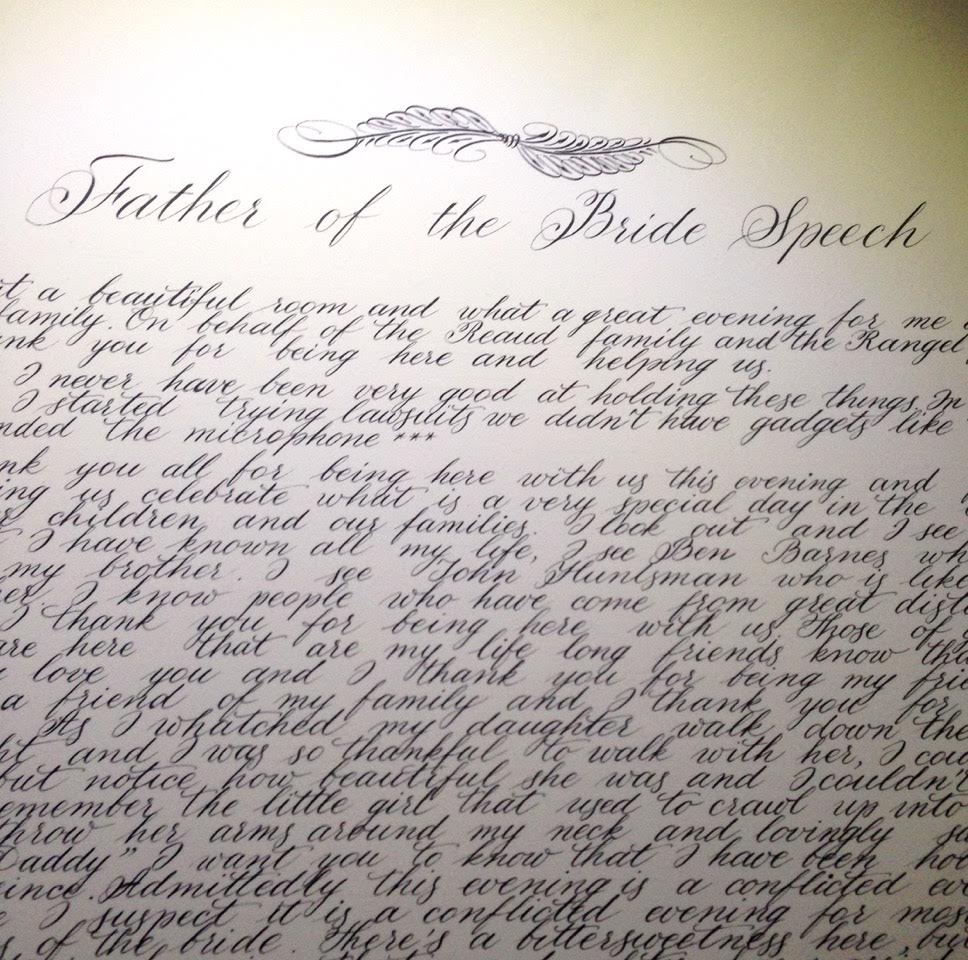 Father of the Bride Speech
a beautiful room and what a great evening for me
family. On behalf of the Reaud family and the Rangel
you for being here and helping us.
I never have been very good at holding these things. In
I started trying lawsuits we didn't have gadgets like
the microphone ***
you all for being here with us this evening and
us celebrate what is a very special day in the
children and our families. I look out and I see
I have known all my life, I see Ben Barnes
my brother. I see John Huntsman who is like
I know people who have come from great
I thank you for being here with us. Those of
are here that are my life long friends know
love you and I thank you for being my
a friend of my family and I thank you for
As I whatched my daughter walk down the
and I was so thankful to walk with her, I
but notice how beautiful she was and I couldn't
the little girl that used to crawl up into
throw her arms around my neck and lovingly
Daddy" I want you to know that I have been
Admittedly this evening is a conflicted
I suspect it is a conflicted evening for
of the bride. There's a bittersweetness here, but